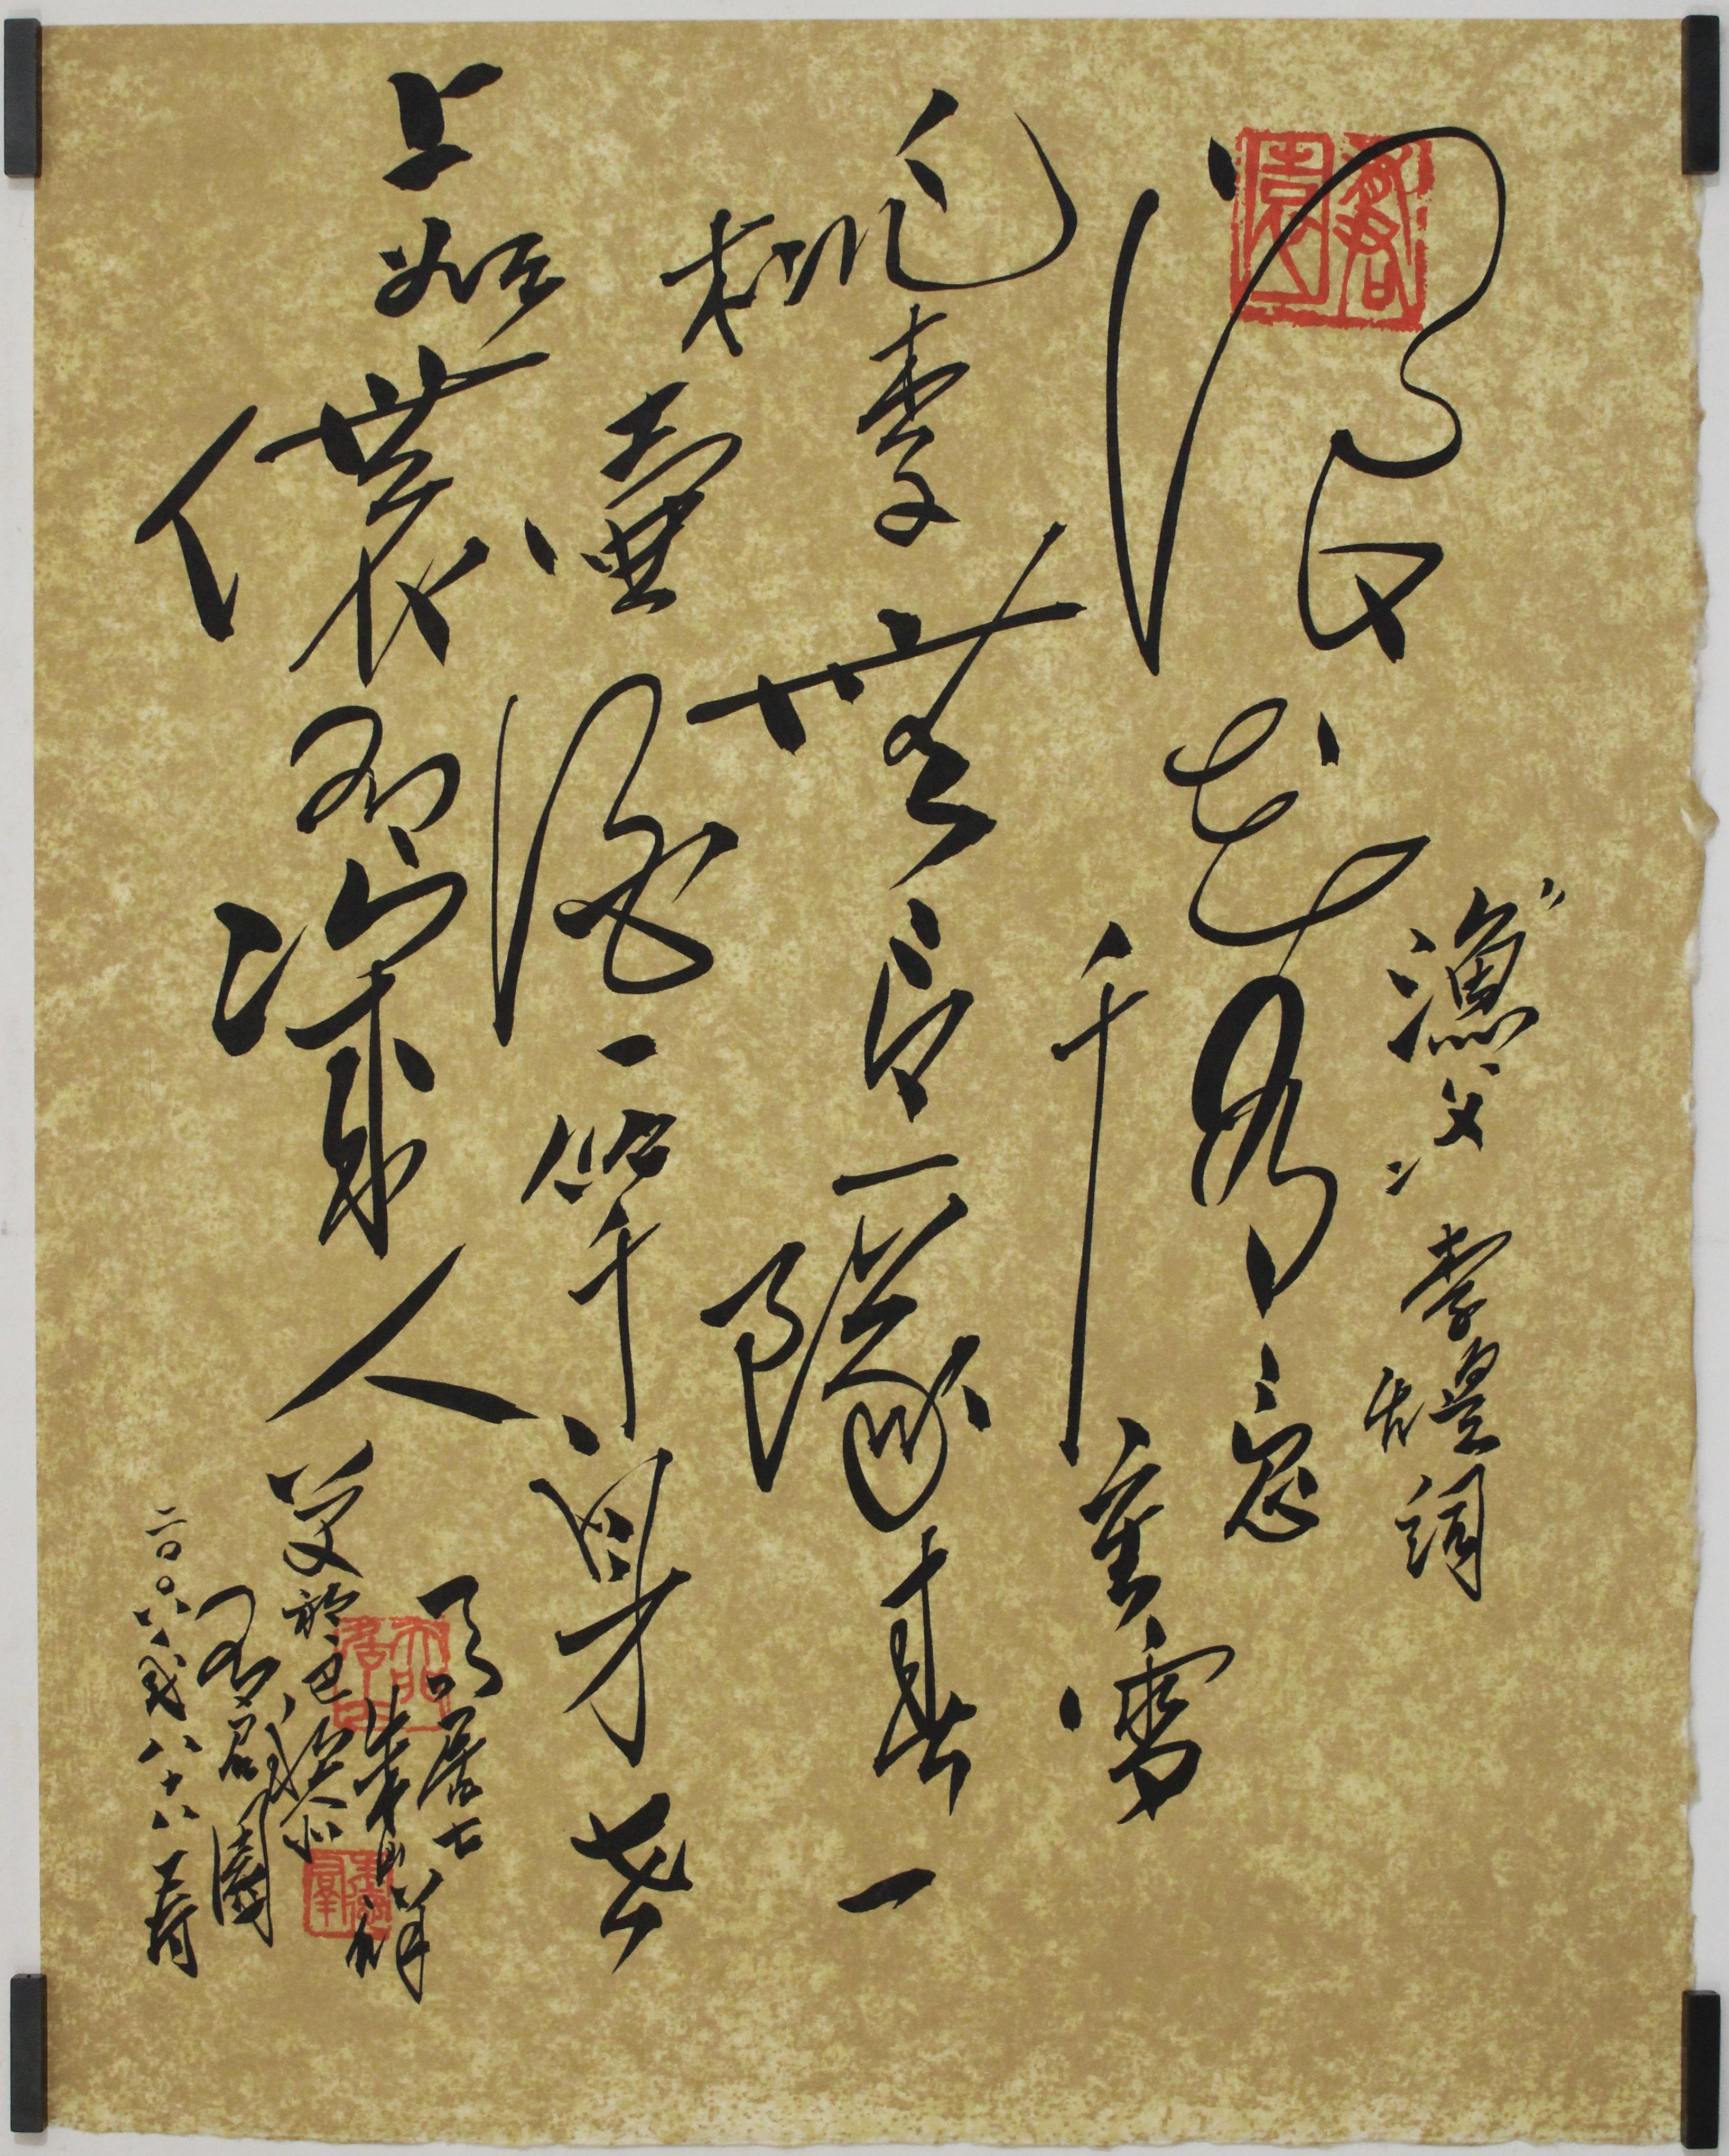 "漁父" 李煜詞
浪花有意
千重雪
桃李無言一隊春一
壺酒一竿身世
上如儂有幾人
居士
於巴黎
君園
二〇〇六 八十八壽